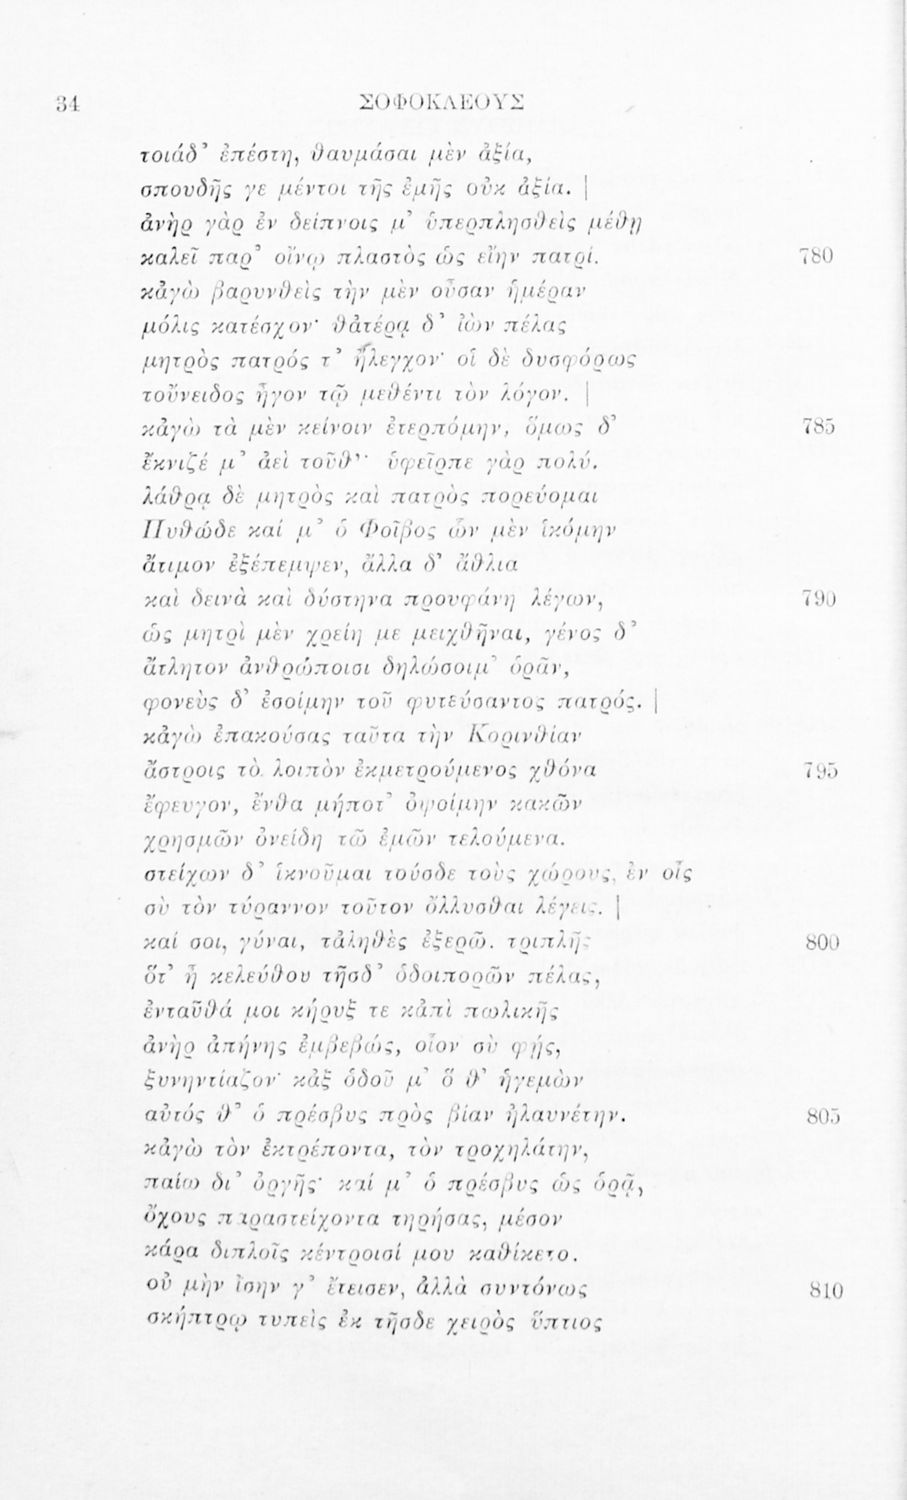 34 ΣΟΦΟΚΛΕΟΥΣ
τοιάδ’ ἐπέστη, θαυμάσαι μὲν ἀξία,
σπουδῆς γε μέντοι τῆς ἐμῆς οὐκ ἀξία. |
ἀνὴρ γὰρ ἐν δείπνοις μ’ ὑπερπλησθεὶς μέθῃ
καλεῖ παρ’ οἴνῳ πλαστὸς ὡς εἴην πατρί. 780
κἀγὼ βαρυνθεὶς τὴν μὲν οὖσαν ἡμέραν
μόλις κατέσχον· θἀτέρᾳ δ’ ἰὼν πέλας
μητρὸς πατρός τ’ ἤλεγχον· οἱ δὲ δυσφόρως
τοὔνειδος ἦγον τῷ μεθέντι τὸν λόγον. |
κἀγὼ τὰ μὲν κείνοιν ἐτερπόμην, ὅμως δ’ 785
ἔκνιζέ μ’ ἀεὶ τοῦθ’· ὑφεῖρπε γὰρ πολύ.
λάθρᾳ δὲ μητρὸς καὶ πατρὸς πορεύομαι
Πυθώδε καί μ’ ὁ Φοῖβος ὧν μὲν ἱκόμην
ἄτιμον ἐξέπεμψεν, ἄλλα δ’ ἄθλια
καὶ δεινὰ καὶ δύστηνα προυφάνη λέγων, 790
ὡς μητρὶ μὲν χρείη με μειχθῆναι, γένος δ’
ἄτλητον ἀνθρώποισι δηλώσοιμ’ ὁρᾶν,
φονεὺς δ’ ἐσοίμην τοῦ φυτεύσαντος πατρός. |
κἀγὼ ἐπακούσας ταῦτα τὴν Κορινθίαν
ἄστροις τὸ λοιπὸν ἐκμετρούμενος χθόνα 795
ἔφευγον, ἔνθα μήποτ’ ὀψοίμην κακῶν
χρησμῶν ὀνείδη τῶ ἐμῶν τελούμενα.
στείχων δ’ ἱκνοῦμαι τούσδε τοὺς χώρους, ἐν οἷς
σὺ τὸν τύραννον τοῦτον ὄλλυσθαι λέγεις. |
καί σοι, γύναι, τἀληθὲς ἐξερῶ. τριπλῆς 800
ὅτ’ ἦ κελεύθου τῆσδ’ ὁδοιπορῶν πέλας,
ἐνταῦθά μοι κήρυξ τε κἀπὶ πωλικῆς
ἀνὴρ ἀπήνης ἐμβεβώς, οἷον σὺ φῄς,
ξυνηντίαζον· κἀξ ὁδοῦ μ’ ὅ θ’ ἡγεμὼν
αὐτός θ’ ὁ πρέσβυς πρὸς βίαν ἠλαυνέτην. 805
κἀγὼ τὸν ἐκτρέποντα, τὸν τροχηλάτην,
παίω δι’ ὀργῆς· καί μ’ ὁ πρέσβυς ὡς ὁρᾷ,
ὄχους παραστείχοντα τηρήσας, μέσον
κάρα διπλοῖς κέντροισί μου καθίκετο.
οὐ μὴν ἴσην γ’ ἔτεισεν, ἀλλὰ συντόνως 810
σκήπτρῳ τυπεὶς ἐκ τῆσδε χειρὸς ὕπτιος